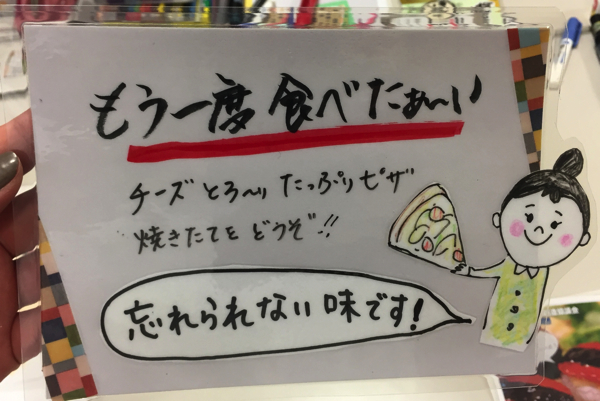 もう一度 食べたぁ〜い
チーズ とろ〜り たっぷりピザ
焼きたてを どうぞ!!
忘れられない 味です!